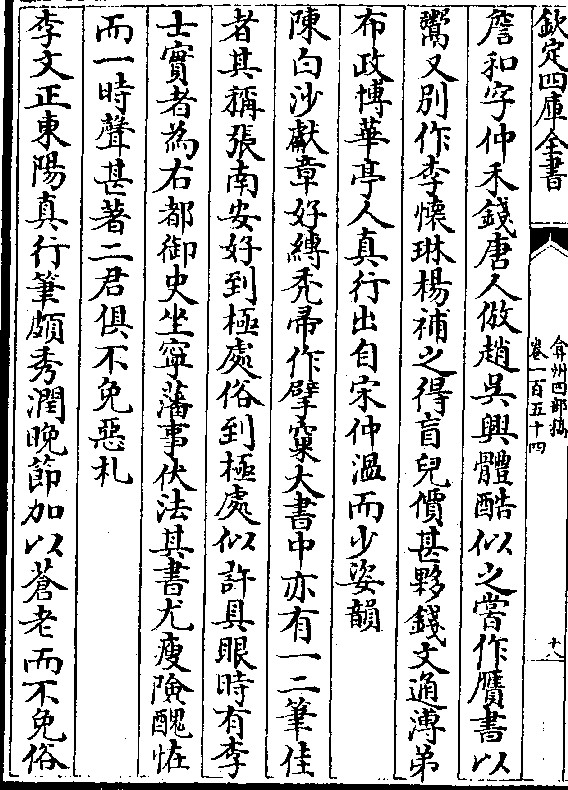 欽定四庫全書
弇州四部稿
卷一百五十四
十八
詹和字仲禾錢唐人倣趙吳興體酷似之嘗作贗書以
鬻又別作李懷琳楊補之得盲兒價甚夥錢文通溥弟
布政博華亭人真行出自宋仲溫而少姿韻
陳白沙獻章好縛禿帚作擘窠大書中亦有一二筆佳
者其稱張南安好到極處俗到極處似許具眼時有李
士實者為右都御史坐寧藩事伏法其書尤瘦險醜怪
而一時聲甚著二君俱不免惡札
李文正東陽真行筆頗秀潤晚節加以蒼老而不免俗